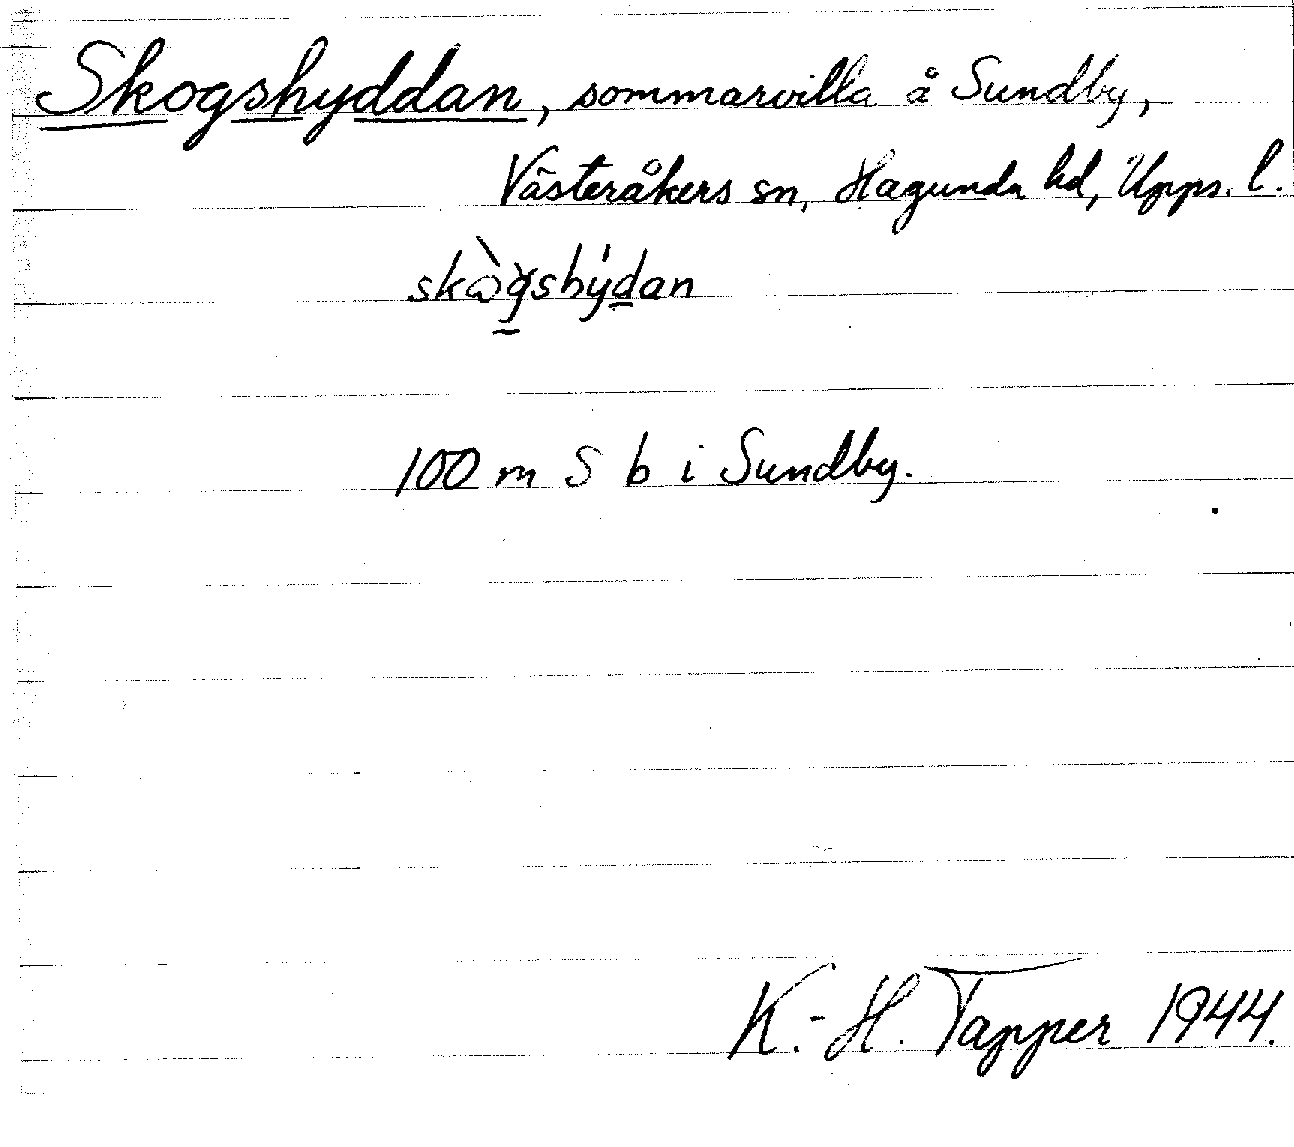 Skogshyddan, sommarvilla å Sundby,
Västeråkers sn, Hagunda hd, Upps. l.
100 m S b i Sundby.
K.-H. Tapper 1944.